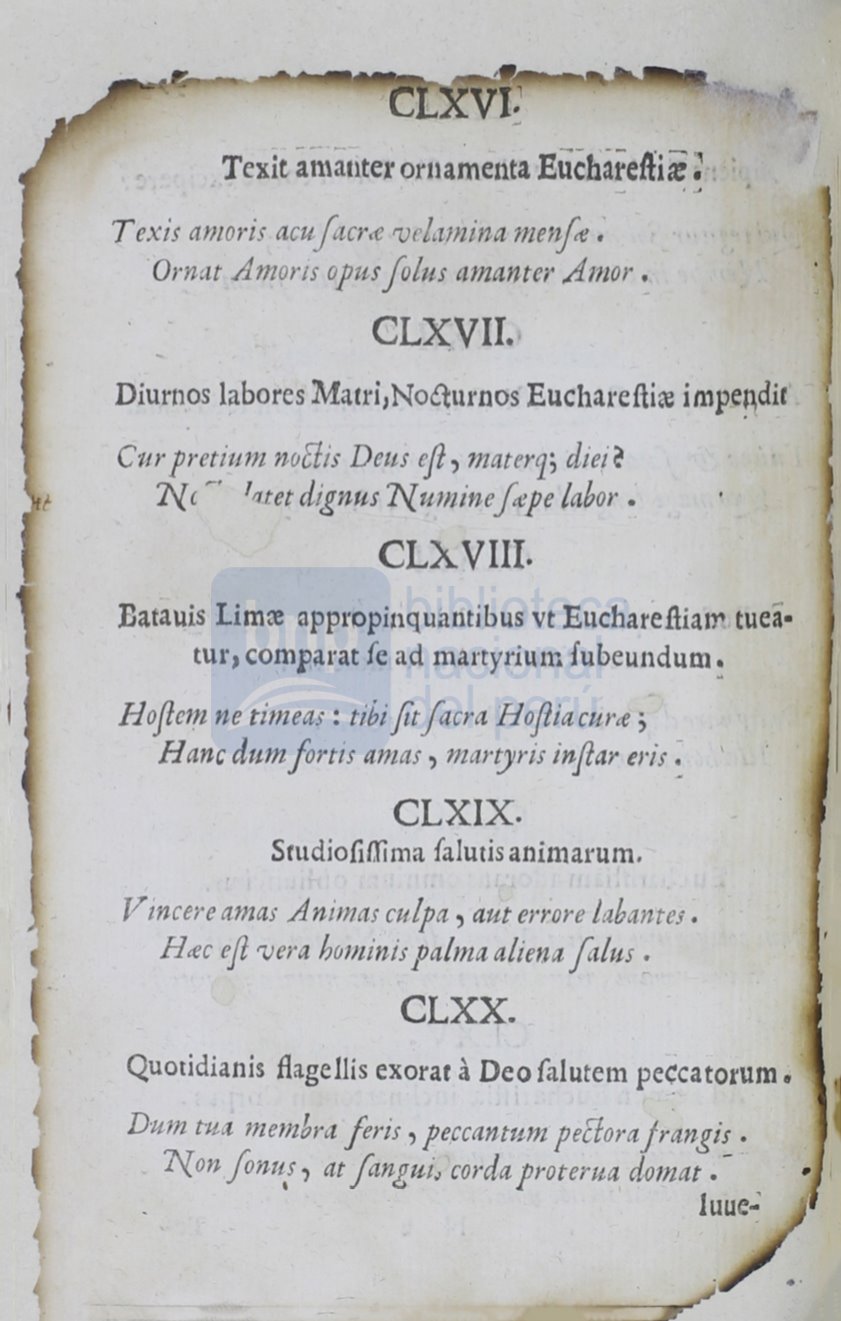 CLXVI.
Texit amanter ornamenta Eucharestiæ.
Texis amoris acu sacræ velamina mensæ.
Ornat Amoris opus solus amanter Amor.
CLXVII.
Diurnos labores Matri, Nocturnos Eucharestiæ impendit
Cur pretium noctis Deus est, materq; diei?
latet dignus Numine sæpe labor.
CLXVIII.
Batauis Limæ appropinquantibus vt Eucharestiam tuea-
tur, comparat se ad martyrium subeundum.
Hostem ne timeas: tibi sit sacra Hostia curæ;
Hanc dum fortis amas, martyris instar eris.
CLXIX.
Studiosissima salutis animarum.
Vincere amas Animas culpa, aut errore labantes.
Hæc est vera hominis palma aliena salus.
CLXX.
Quotidianis flagellis exorat à Deo salutem peccatorum.
Dum tua membra feris, peccantum pectora frangis.
Non sonus, at sanguis corda proterua domat.
Iuue-
bnp biblioteca
nacional
del perú